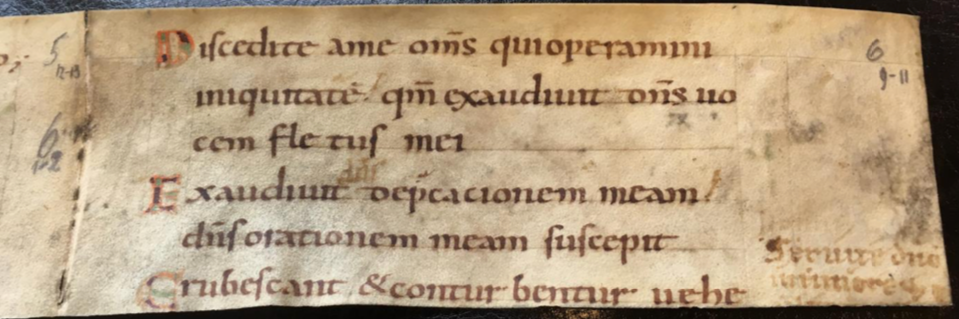 5
12-13
6
1-2
6
9-11
Discedite ame om̅s quioperamini
iniquitatē qm̅ exaudiuit dn̅s uo
cem fletus mei
Exaudiuit dep̅cacionem meam
dn̅s orationem meam suscepit
Erubescant & conturbentur uehe
Seruite dno